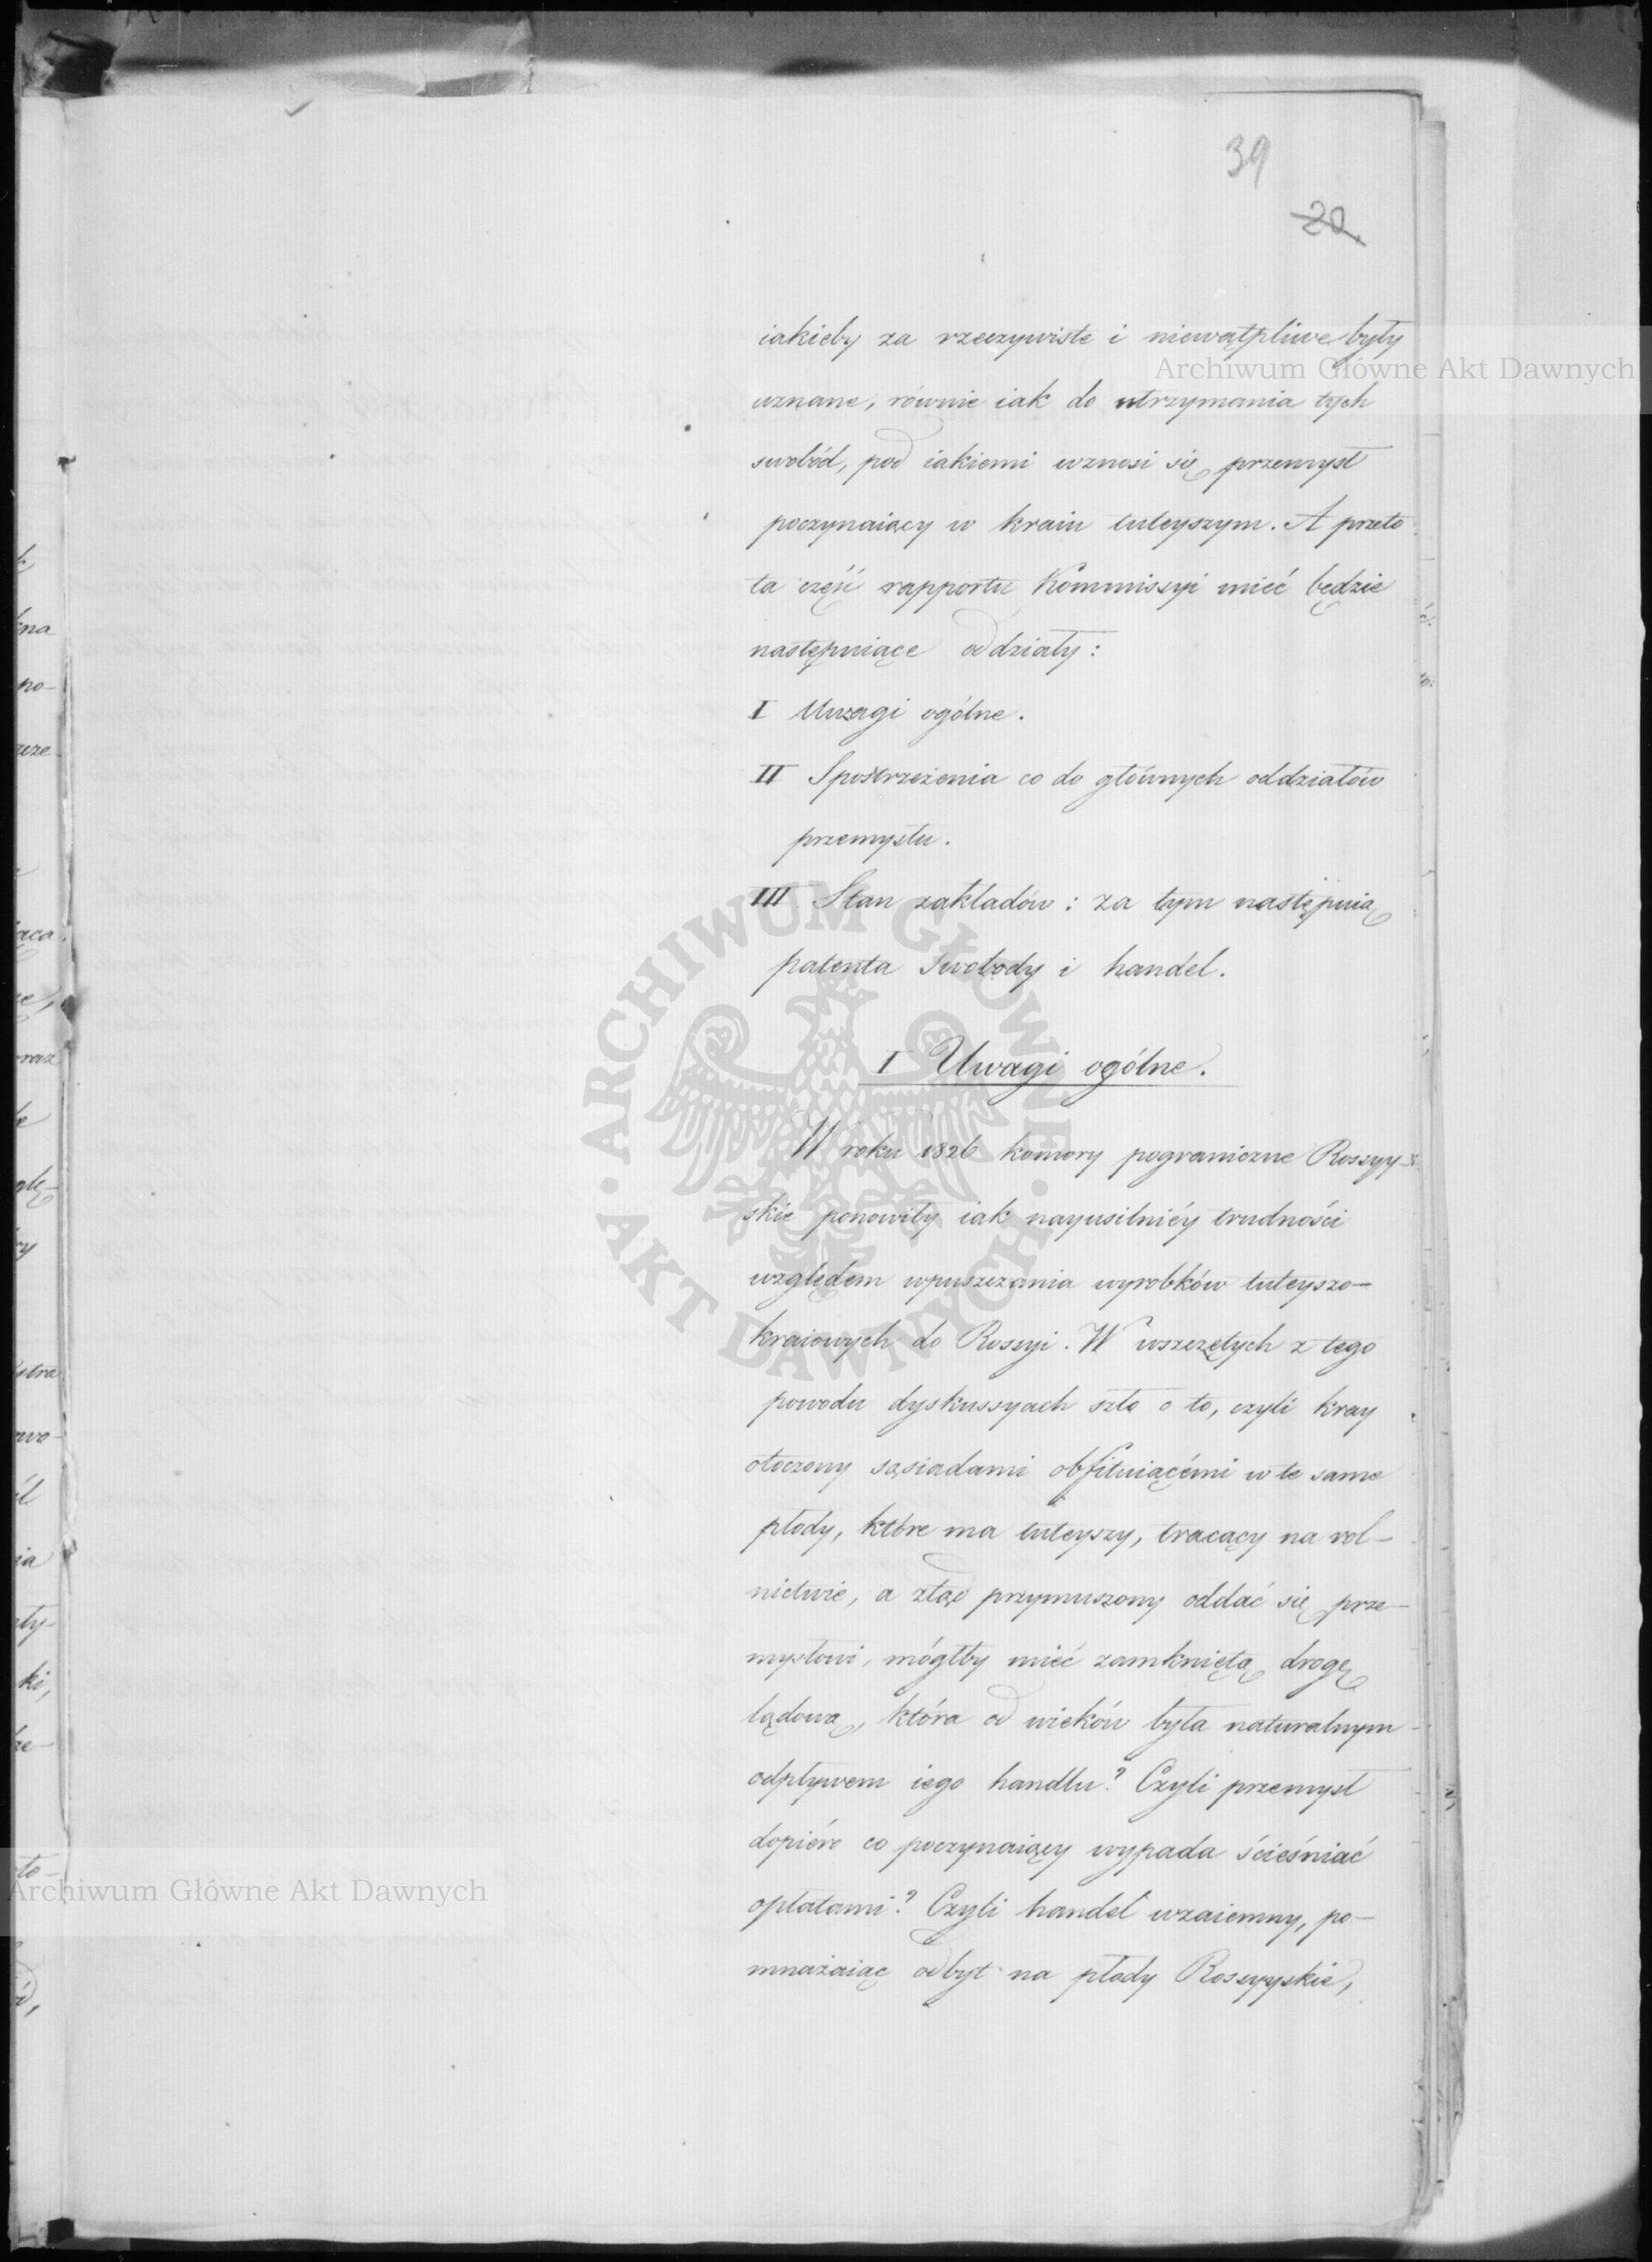 39
20
iakieby za rzeczywiste i niewątpliwe były
uznane, równie iak do utrzymania tych
swobód, pod iakiemi wznosi się przemysł
poczynaiący w kraiu tuteyszym. A przeto
ta część rapportu Kommissyi mieć będzie
następuiące oddziały:
I Uwagi ogólne.
II Spostrzeżenia co do głównych oddziałów
przemysłu.
III Stan zakładów: za tym następuią
patenta Swobody i handel.
I Uwagi ogólne.
W roku 1826 komory pograniczne Rossyy-
skie ponowiły iak nayusilniéy trudności
względem wpuszczania wyrobków tuteyszo-
kraiowych do Rossyi. W wszczętych z tego
powodu dyskussyach szło o to, czyli kray
otoczony sąsiadami obfituiącémi w te same
płody, które ma tuteyszy, tracący na rol-
nictwie, a ztąd przymuszony oddać się prze-
mysłowi, mógłby mieć zamkniętą drogę
lądową, która od wieków była naturalnym
odpływem iego handlu? Czyli przemysł
dopiéro co poczynaiący wypada ścieśniać
opłatami? Czyli handel wzaiemny, po-
mnażaiąc odbyt na płody Rossyyskie,
Archiwum Główne Akt Dawnych
Archiwum Główne Akt Dawnych
ARCHIWUM GŁÓWNE
AKT DAWNYCH